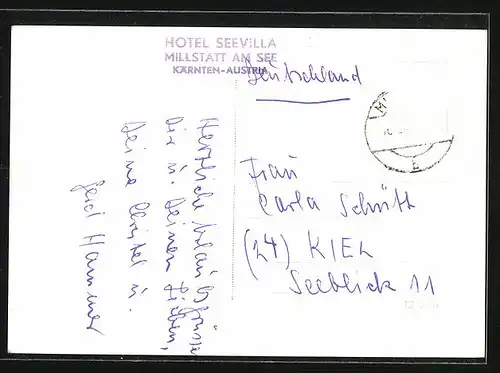 HOTEL SEEVILLA
MILLSTATT AM SEE
KÄRNTEN-AUSTRIA
Deutschland
Herzliche Urlaubsgrüsse
Dir u. Deinen Lieben,
Deine Christel u.
Gerd Hammer
Frau
Carla Schütt
(24) KIEL
Seeblick 11